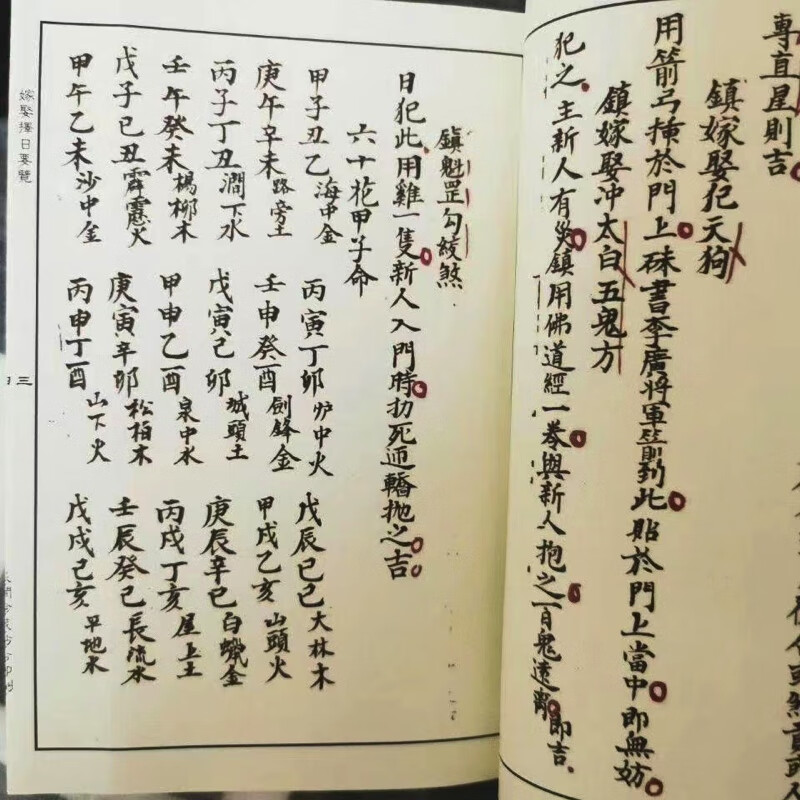 專直星則吉
鎮嫁娶犯天狗
用箭弓挿於門上硃書李廣將軍箭到此貼於門上當中即無妨
鎮嫁娶冲太白五鬼方
犯之主新人有災鎮用佛道經一卷與新人抱之百鬼遠離即吉.
鎮魁罡勾絞煞
日犯此用雞一隻新人入門時扐死迊轎拋之吉
六十花甲子命
甲子丑乙海中金 丙寅丁卯炉中火 戊辰己巳大林木
庚午辛未路旁土 壬申癸酉劍鋒金 甲戌乙亥山頭火
丙子丁丑澗下水 戊寅己卯城頭土 庚辰辛巳白蠟金
壬午癸未楊柳木 甲申乙酉泉中水 丙戌丁亥屋上土
戊子己丑霹靂火 庚寅辛卯松柏木 壬辰癸巳長流水
甲午乙未沙中金 丙申丁酉山下火 戊戌己亥平地木
嫁娶擇日要覽
三